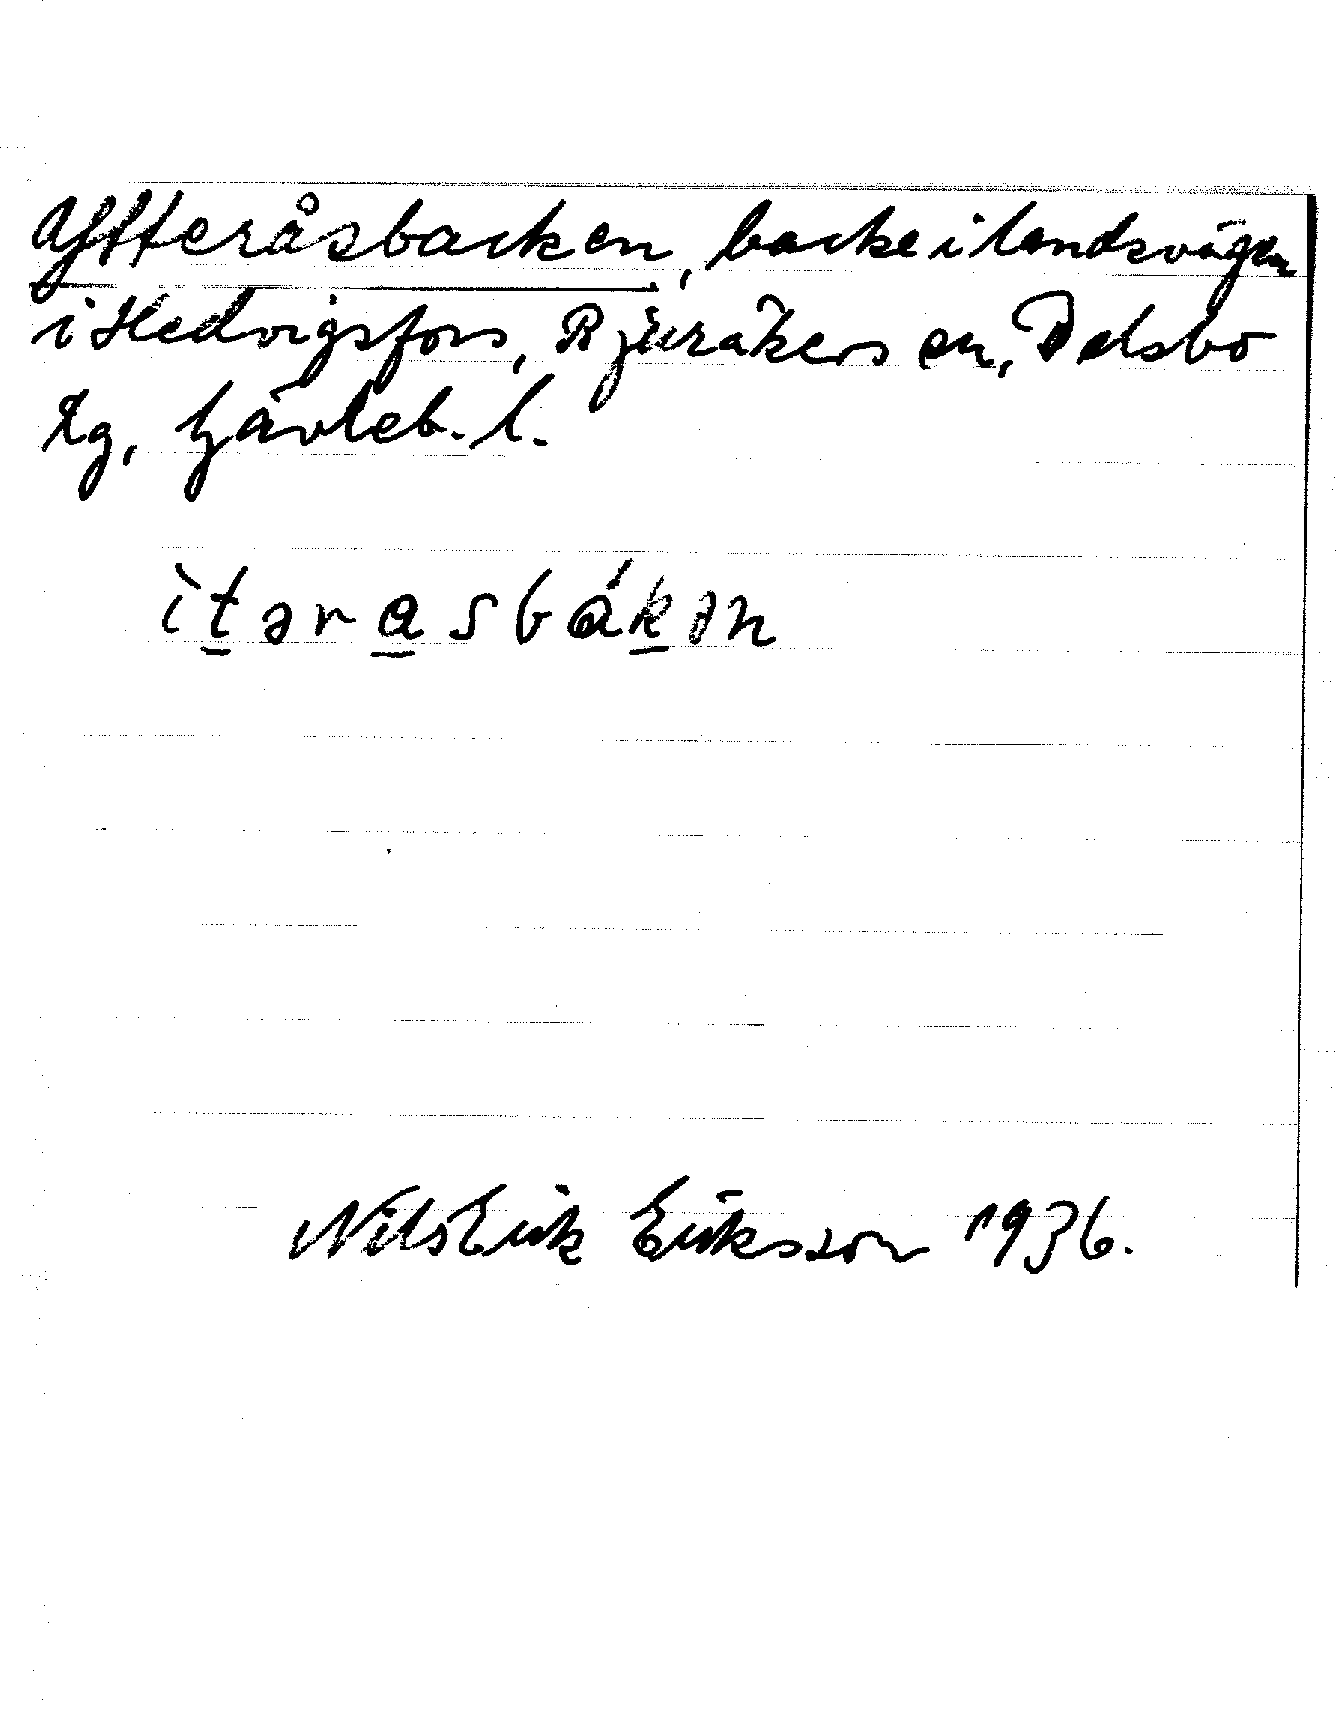 Ytteråsbacken, backe i landsvägen
i Hedvigsfors, Bjuråkers sn, Delsbo
tg, Gävleb. l.
ìtərasbákən
Nils Erik Eriksson 1936.